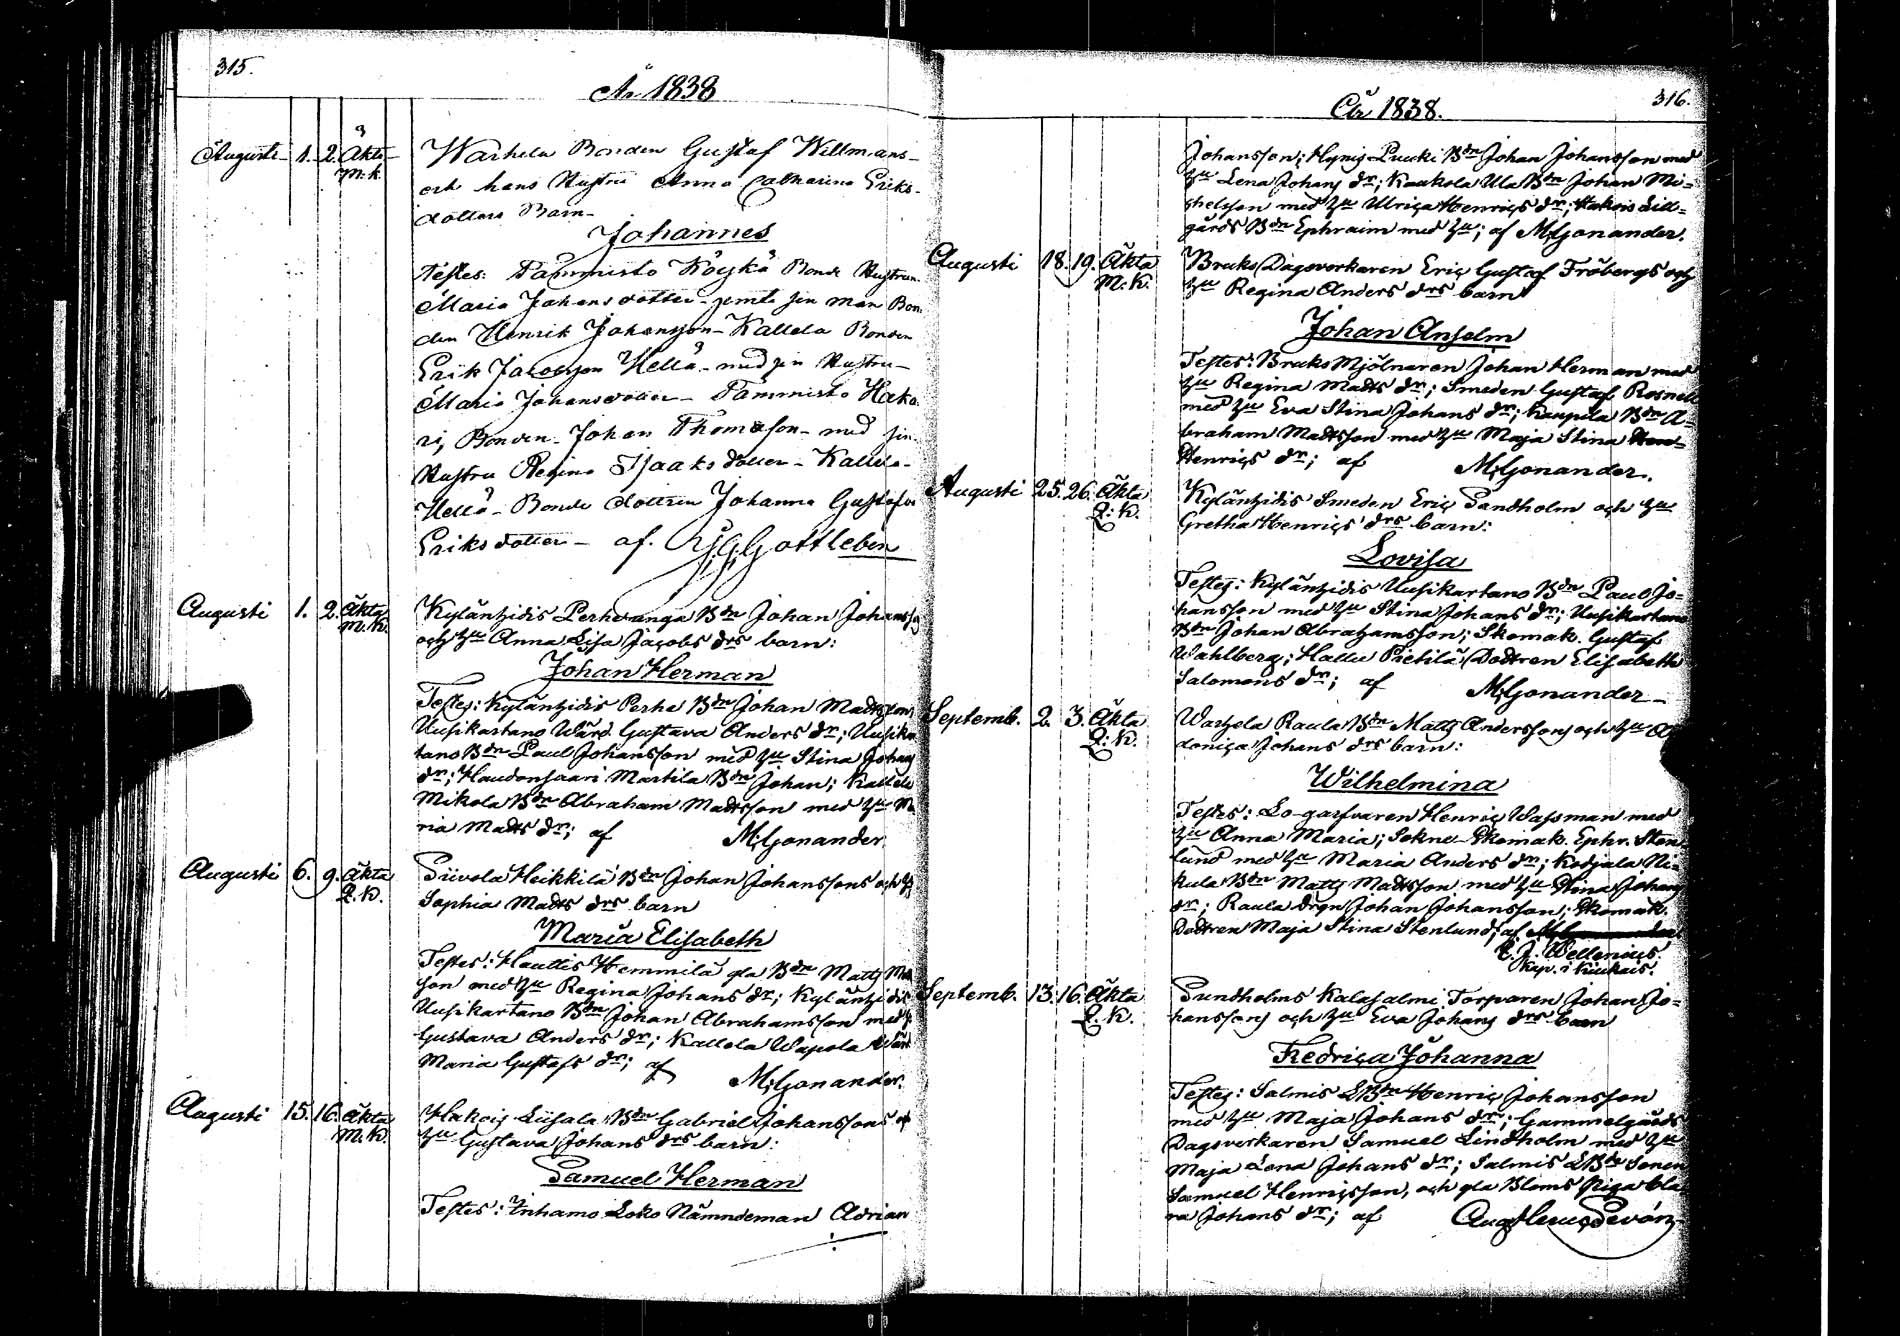 315.
År 1838
Augusti 1. 2. Äkta M. k.
Warhela Bonden Gustaf Willmans
och hans Hustru Anna Catharina Eriks
dotters Barn
Johannes
Testes: Tammisto Köykä Bonde Hustrun
Maria Johansdotter jemte sin man Bon
den Henrik Johansson Kallela Bonden
Erik Jacobsson Hellä med sin Hustru
Maria Johansdotter Tammisto Haka
ri, Bonden Johan Thomasson med sin
Hustru Regina Isaaks dotter Kallela
Hellä Bonde dottren Johanna Gustafva
Eriks dotter af. Gottleben
Augusti 1. 2. Äkta M. K.
Kyläntzidis Perhoanga Bdn Johan Johansson
och hu Anna Lisa Jacobs drs barn:
Johan Herman
Testes: Kyläntzidis Perho Bdn Johan Madtsson;
Uusikartano Wärd. Gustava Anders dr; Uusikar
tano Bdn Paul Johansson med hu Stina Johans
dr; Haudonsaari Martila Bdn Johan; Kallela
Mikola Bdn Abraham Madtsson med hu Ma
ria Madts dr; af M. Gonander.
Augusti 6. 9. Äkta Q. K.
Siivola Heikkilä Bdn Johan Johanssons och hu
Sophia Madts drs barn
Maria Elisabeth
Testes: Hauttis Hemmilä gla Bdn Matts Mads
son med hu Regina Johans dr; Kyläntzidis
Uusikartano Bdn Johan Abrahamsson med hu
Gustava Anders dr; Kallela Wäpola Wärd
Maria Gustafs dr; af M. Gonander.
Augusti 15. 16. Äkta M. K.
Hakois Liisala Bdn Gabriel Johanssons och
hu Gustava Johans drs barn:
Samuel Herman
Testes: Inhamo Loko Nämndeman Adrian
316.
År 1838.
Johansson; Hypnis Puuki Bdn Johan Johansson med
hu Lena Johans dr; Kaukola Ula Bdn Johan Mi=
chelsson med hu Ulrica Henrics dr; Hakois Lill=
gårds Bdn Ephraim med hu; af M. Gonander.
Augusti 18. 19. Äkta M. K.
Bruks Dagsverkaren Eric Gustaf Fröbergs och
hu Regina Anders drs barn
Johan Anselm
Testes: Bruks Mjölnaren Johan Herman med
hu Regina Madts dr; Smeden Gustaf Rosnell
med hu Eva Stina Johans dr; Kaupila Bdn A=
braham Madtsson med hu Maja Stina
Henrics dr; af M. Gonander.
Augusti 25. 26. Äkta Q. K.
Kyläntzidis Smeden Eric Sandholm och hu
Gretha Henrics drs barn:
Lovisa
Testes: Kyläntzidis Uusikartano Bdn Paul Jo=
hansson med hu Stina Johans dr; Uusikartano
Bdn Johan Abrahamsson; Skomak. Gustaf
Wahlberg; Hallu Pietilä Dottren Elisabeth
Salomons dr; af M. Gonander
Septemb. 2. 3. Äkta Q. K.
Warhela Raula Bdn Matts Anderssons och hu A
donica Johans drs barn:
Wilhelmina
Testes: Lo-garfvaren Henric Wassman med
hu Anna Maria; Sokne Skomak. Ephr. Sten
lund med hu Maria Anders dr; Kodjala Ni=
kula Bdn Matts Madtsson med hu Stina Johans
dr; Raula drgn Johan Johansson; Skomak.
Dottren Maja Stina Stenlund; af
C. J. Wellenius.
Kap. i Kiukais.
Septemb. 13. 16. Äkta Q. K.
Sundholms Kalasalmi Torparen Johan Jo=
hanssons och hu Eva Johans drs barn
Fredrica Johanna
Testes: Salmis LBdn Henric Johansson
med hu Maja Johans dr; Gammelgårds
Dagsverkaren Samuel Lindholm med hu
Maja Lena Johans dr; Salmis LBde Sonen
Samuel Henricsson, och gla Bloms Piga Cla
ra Johans dr; af